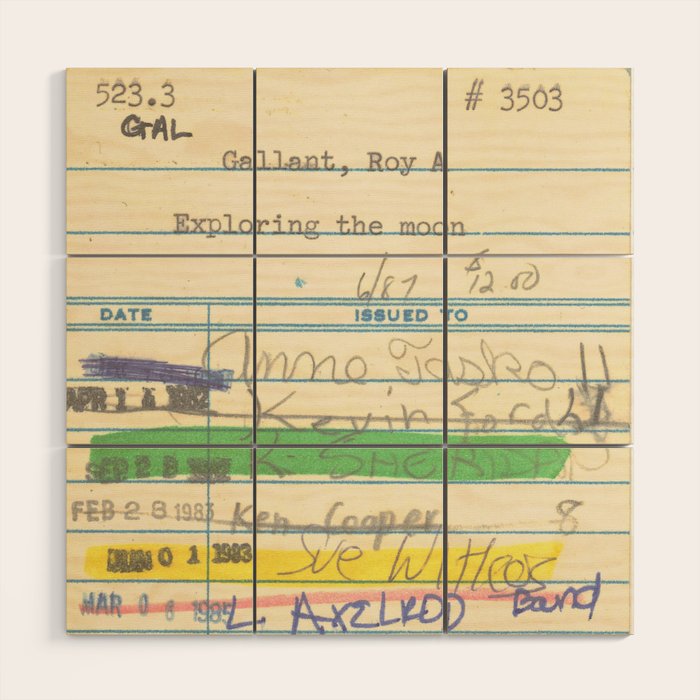 523.3 # 3503
GAL
Gallant, Roy A
Exploring the moon
6/87 $12.00
DATE ISSUED TO
Anne Tasko 11
APR 14 1982 Kevin Ford
SEP 28 K. SHERIDAN
FEB 28 1983 Ken Cooper 8
JUN 01 1983 Sue Witteos
MAR 08 1985 L. AXELROD Band